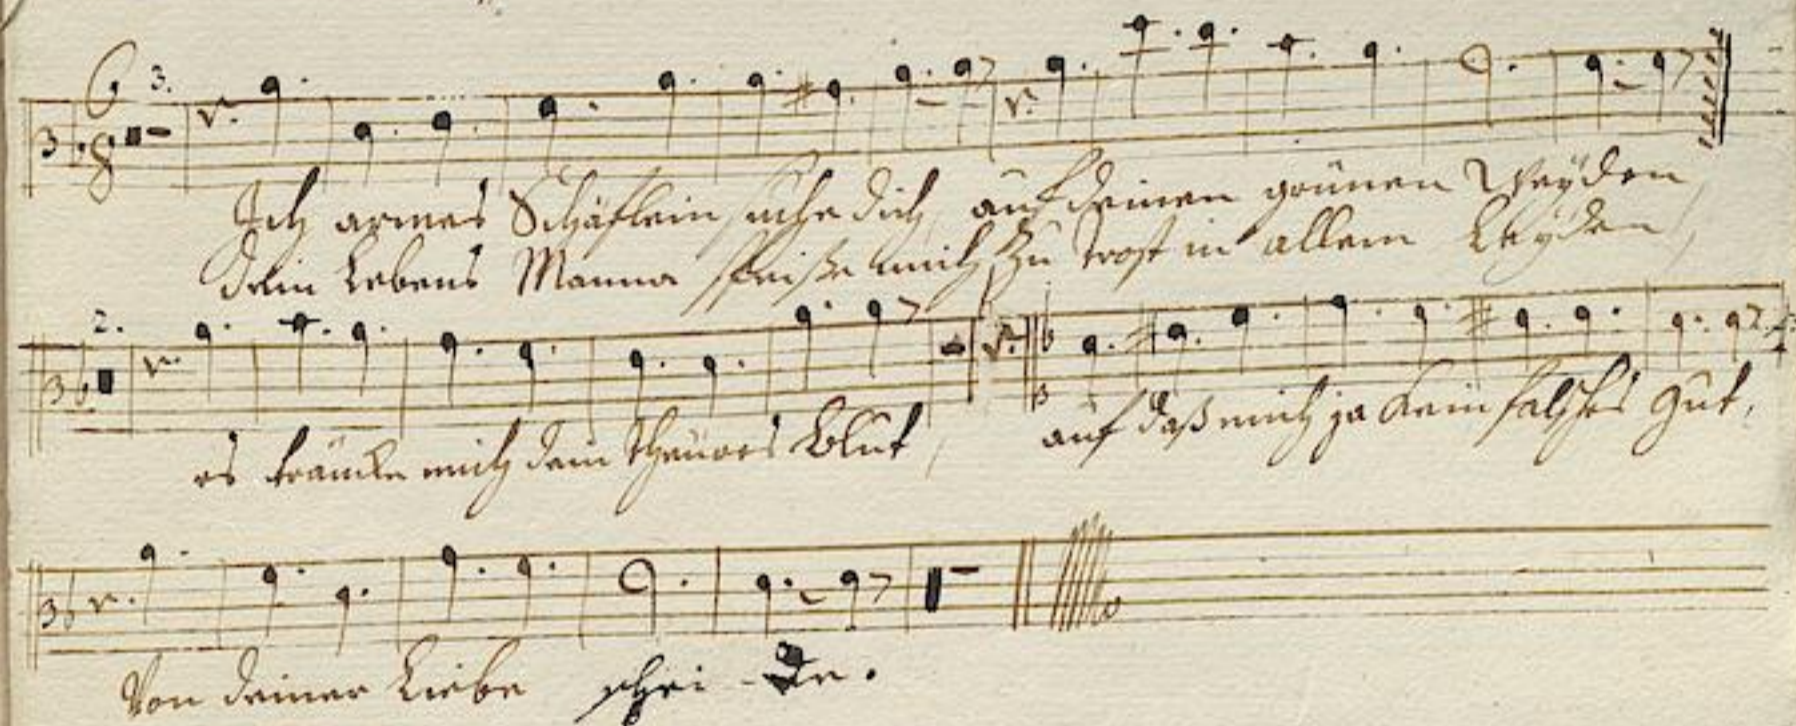 3.
6
8
Ich armes Schäflein suche dich, auf deinen grünen Weyden,
dein Lebens Manna speise mich, Zu trost in allem Leyden,
2.
es träncke mich dein theures Blut, auf daß mich ja kein falsches Gut,
Von deiner Liebe schei-de.